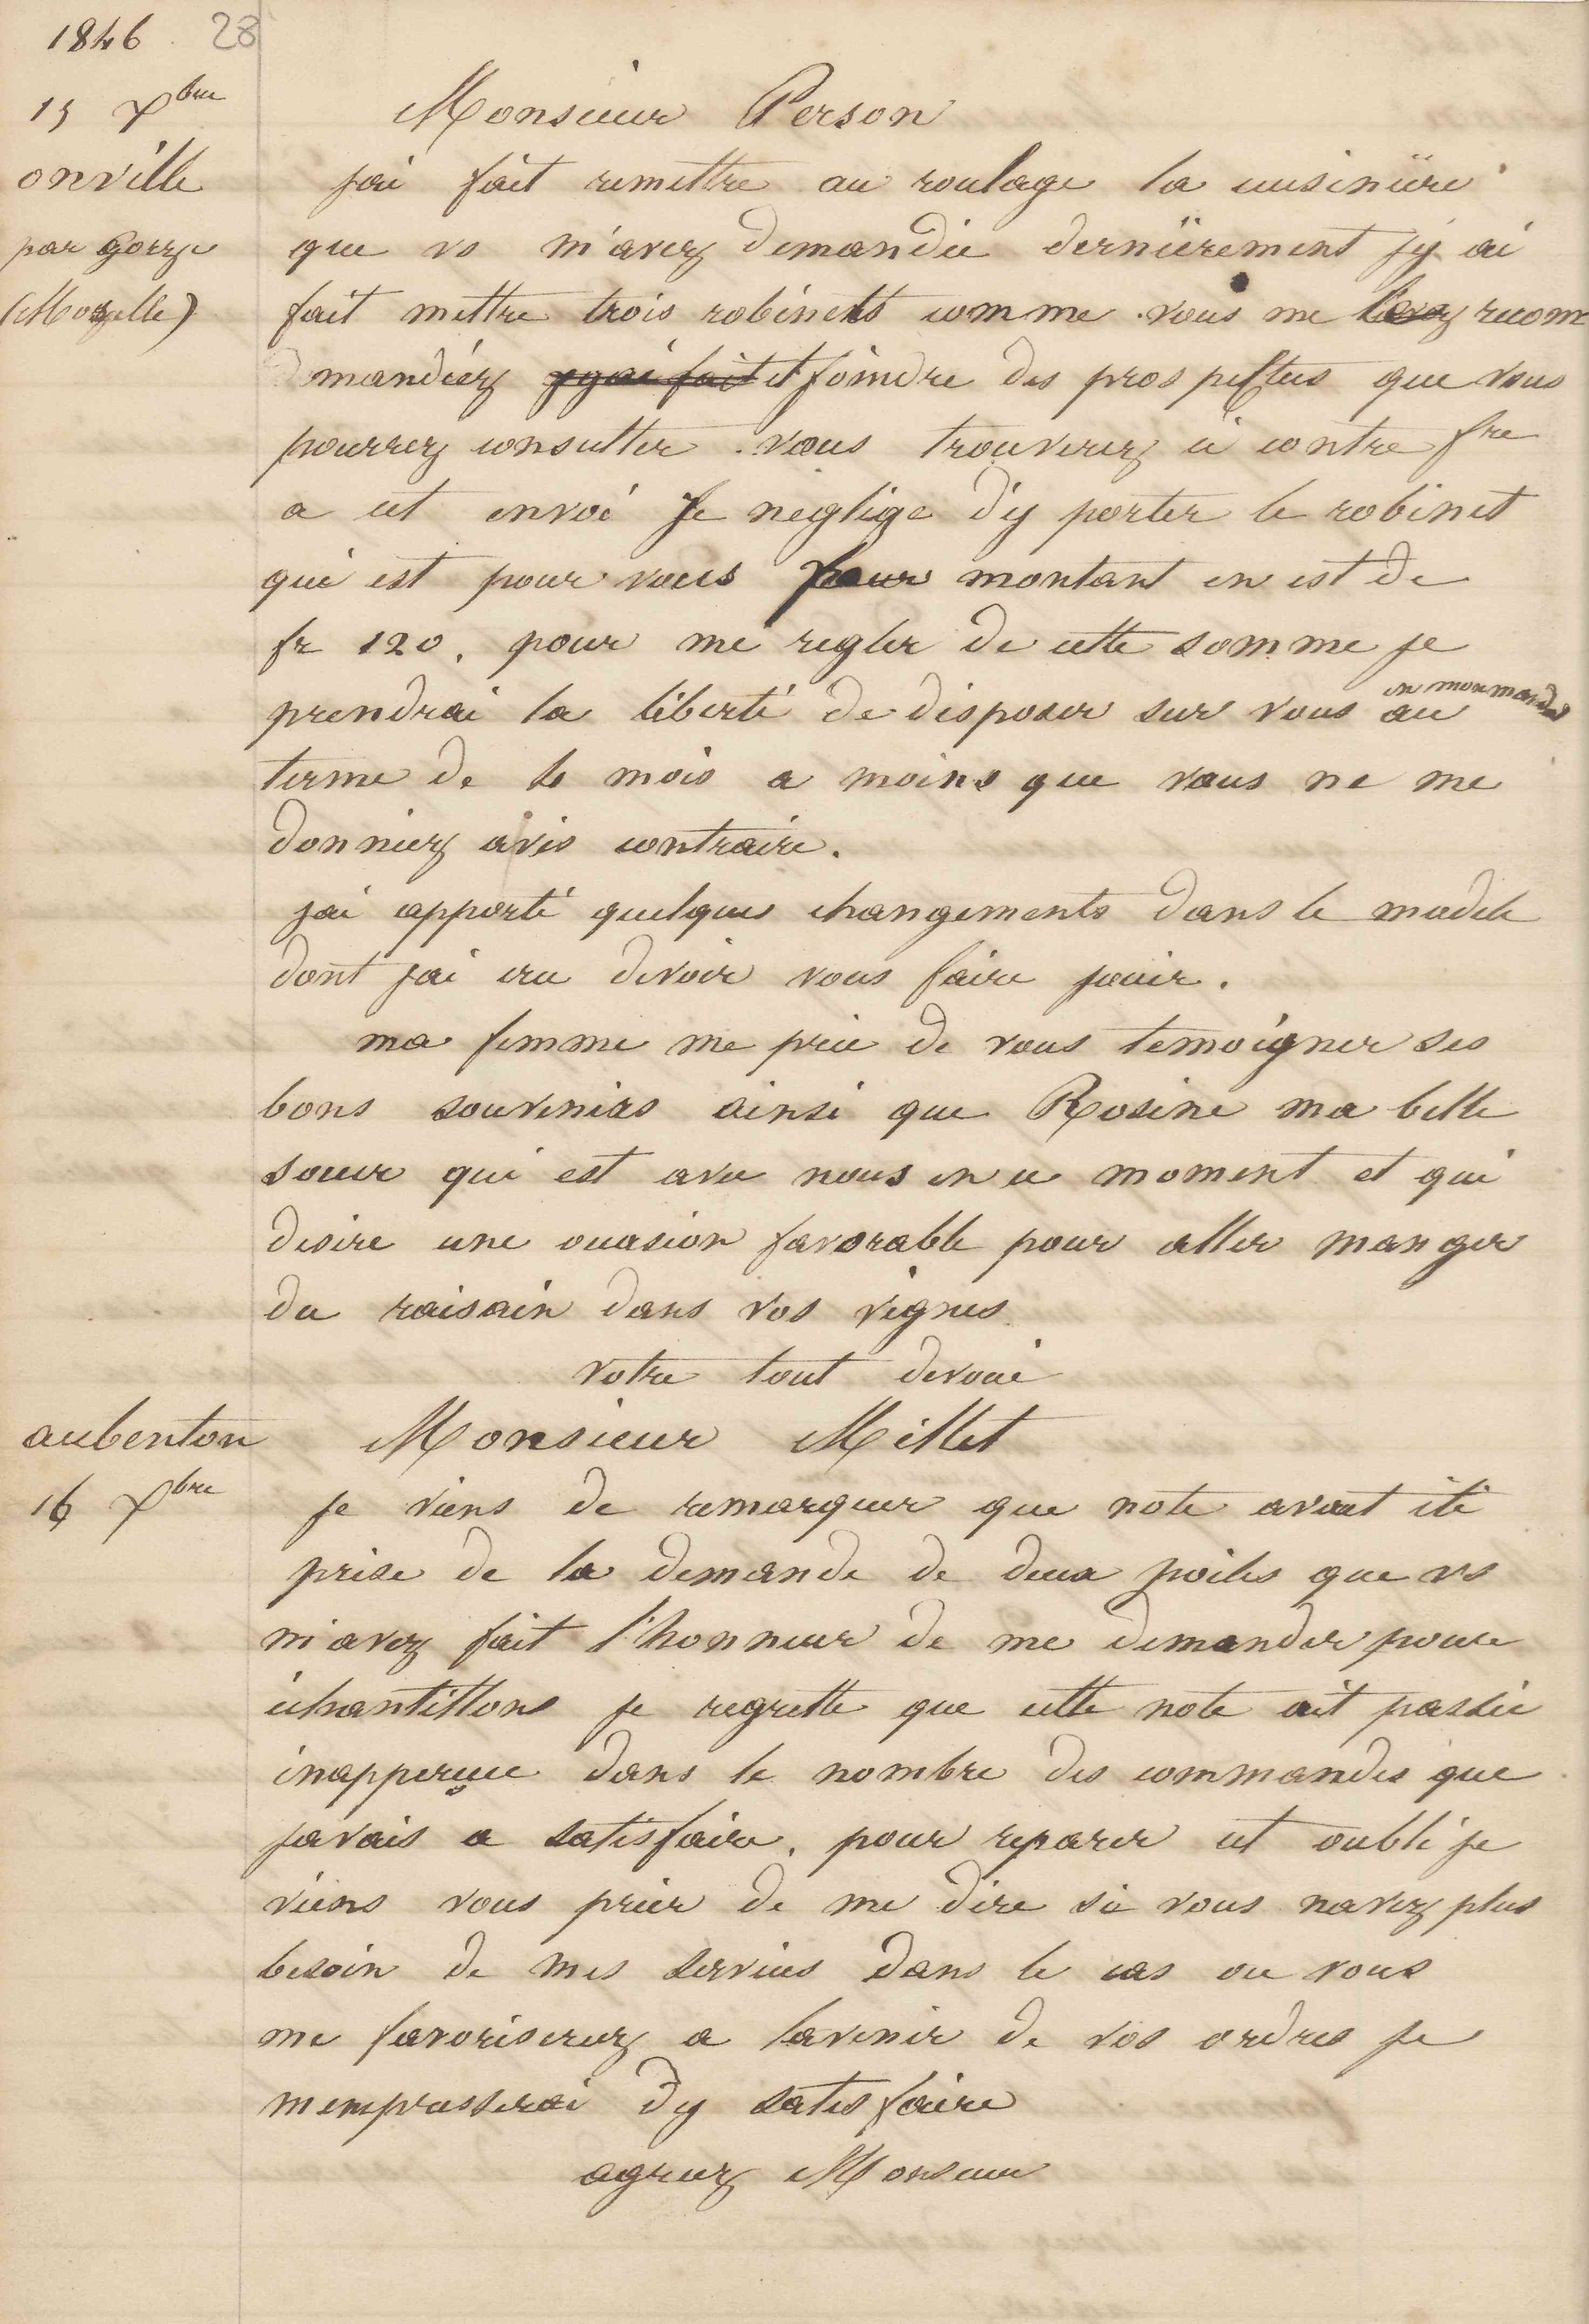 1846 28
15 Xbre
Monsieur Person
onville
jai fait remettre au roulage la cuisinière
par gorze
que vs m'avez demandée dernièrement j'y ai
(Mozelle)
fait mettre trois robinets comme vous me recom
mandiéz y ai fait et joindre des prospectus que vous
pourrez consulter. vous trouverez ci contre fre
a cet envoi Je neglige d'y porter le robinet
qui est pour vous montant en est de
fr 120. pour me regler de cette somme je
prendrai la liberté de disposer sur vous au
en mon mandat
terme de le mois a moins que vous ne me
donniez avis contraire.
jai apporté quelques changements dans le modele
dont jai cru devoir vous faire jouir.
ma femme me prie de vous temoigner ses
bons souvenirs ainsi que Rosine ma belle
soeur qui est avec nous en ce moment et qui
desire une occasion favorable pour aller manger
du raisain dans vos vignes.
votre tout devoué
aubenton
Monsieur Millet
16 Xbre
je viens de remarquer que note avait été
prise de la demande de deux poiles que vs
m'avez fait l'honneur de me demander pour
échantillons je regrette que cette note ait passée
inapperçue dans le nombre des commandes que
javais a satisfaire. pour reparer cet oubli je
viens vous prier de me dire si vous navez plus
besoin de mes services dans le cas ou vous
me favoriserez a lavenir de vos ordres je
mempresserai dy satisfaire
agreez Monsieur